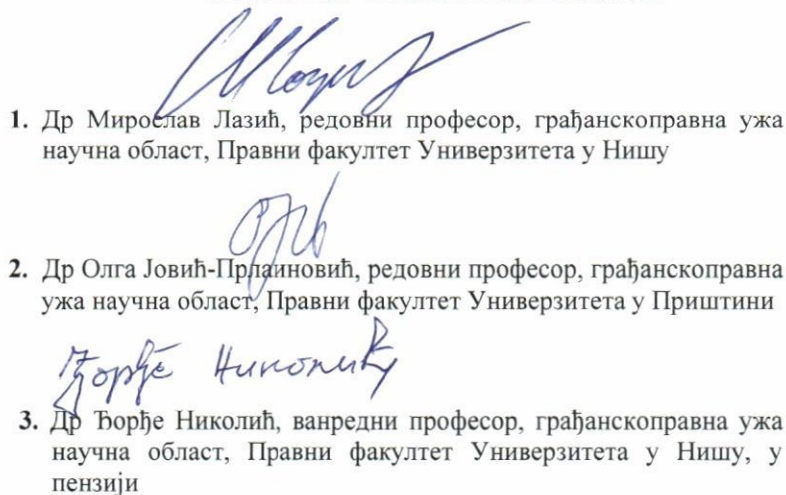 1. Др Мирослав Лазић, редовни професор, грађанскоправна ужа
научна област, Правни факултет Универзитета у Нишу
2. Др Олга Јовић-Прлаиновић, редовни професор, грађанскоправна
ужа научна област, Правни факултет Универзитета у Приштини
Ђорђе Николић
3. Др Ђорђе Николић, ванредни професор, грађанскоправна ужа
научна област, Правни факултет Универзитета у Нишу, у
пензији